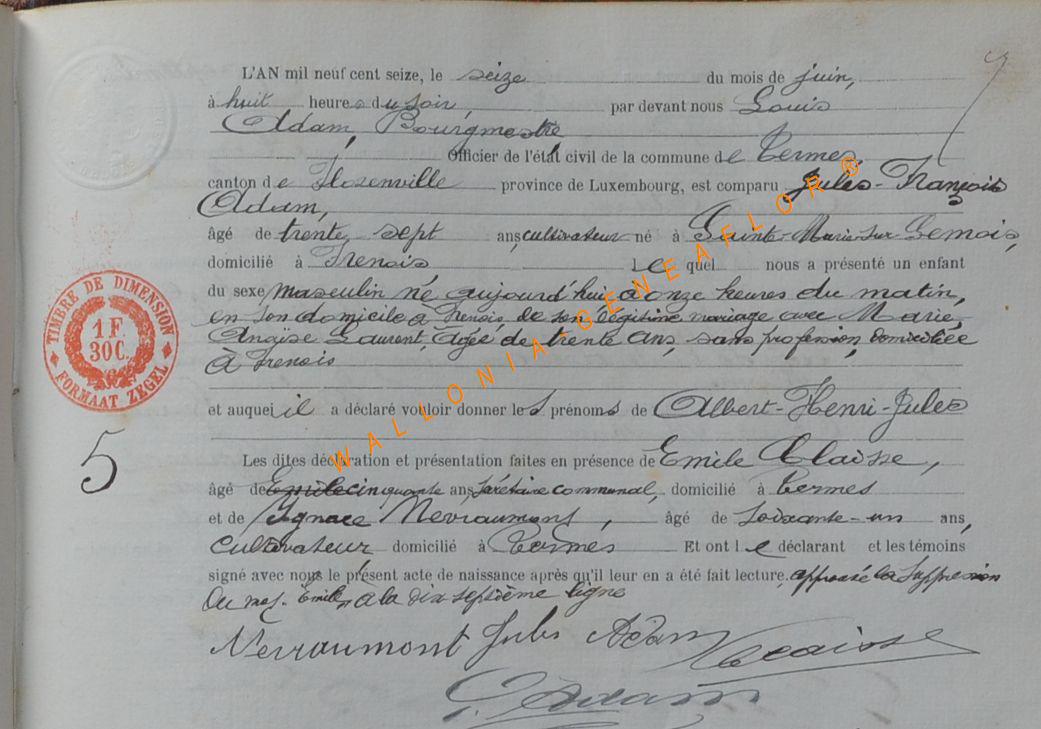 L'AN mil neuf cent seize, le seize du mois de juin,
à huit heures du soir, par devant nous Louis
Adam, Bourgmestre
Officier de l'état civil de la commune de Termes,
canton de Florenville province de Luxembourg, est comparu Jules-François
Adam,
âgé de trente sept ans, cultivateur né à Sainte-Marie-sur-Semois,
domicilié à Frenois lequel nous a présenté un enfant
du sexe masculin né aujourd'hui à onze heures du matin,
en son domicile à Frenois de son légitime mariage avec Marie
Anaïse Laurent, âgée de trente ans, sans profession, domiciliée
à Frenois
et auquel il a déclaré vouloir donner les prénoms de Albert-Henri-Jules
Les dites déclaration et présentation faites en présence de Emile Claisse,
âgé de Emile cinquante ans, secrétaire communal, domicilié à Termes
et de Ignace Nevraumont, âgé de soixante-un ans,
cultivateur domicilié à Termes Et ont le déclarant et les témoins
signé avec nous le présent acte de naissance après qu'il leur en a été fait lecture, approuvé la suppression
du mot Emile, à la dix septième ligne
Nevraumont Jules Adam Claisse
L. Adam
TIMBRE DE DIMENSION
1 F.
30 C.
FORMAAT ZEGEL
5
WALLONIA-GENEAFLOR®